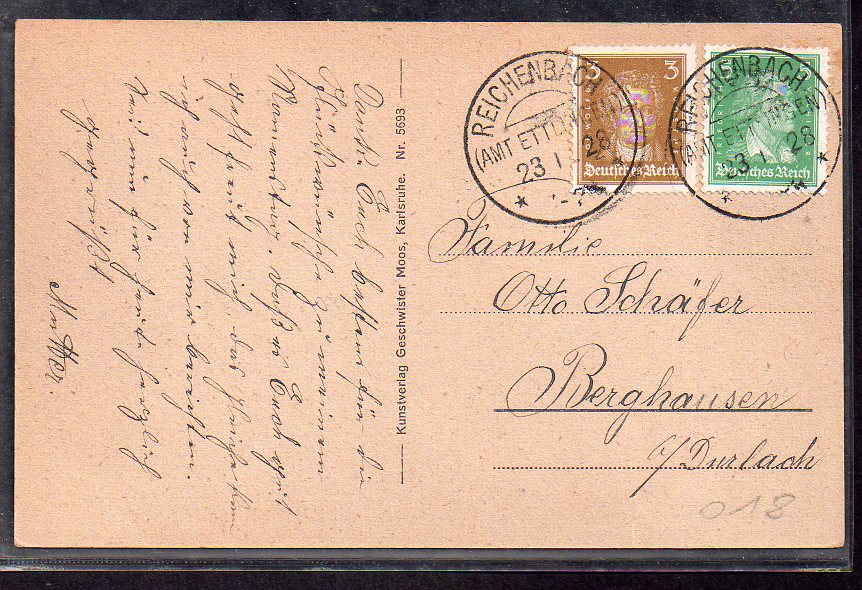 Danke Euch bestens für die
Glückwünsche zu meinem
Namenstag. Daß es Euch gut
geht freut mich, das Gleiche kann
ich auch von mir berichten.
Seid nun für heute herzlich
gegrüßt
Kunstverlag Geschwister Moos, Karlsruhe. Nr. 5693
REICHENBACH
(AMT ETTLINGEN)
23 1 28
3 3
Deutsches Reich
REICHENBACH
(AMT ETTLINGEN)
23 1 28
5
Deutsches Reich
Familie
Otto Schäfer
Berghausen
b/Durlach
018